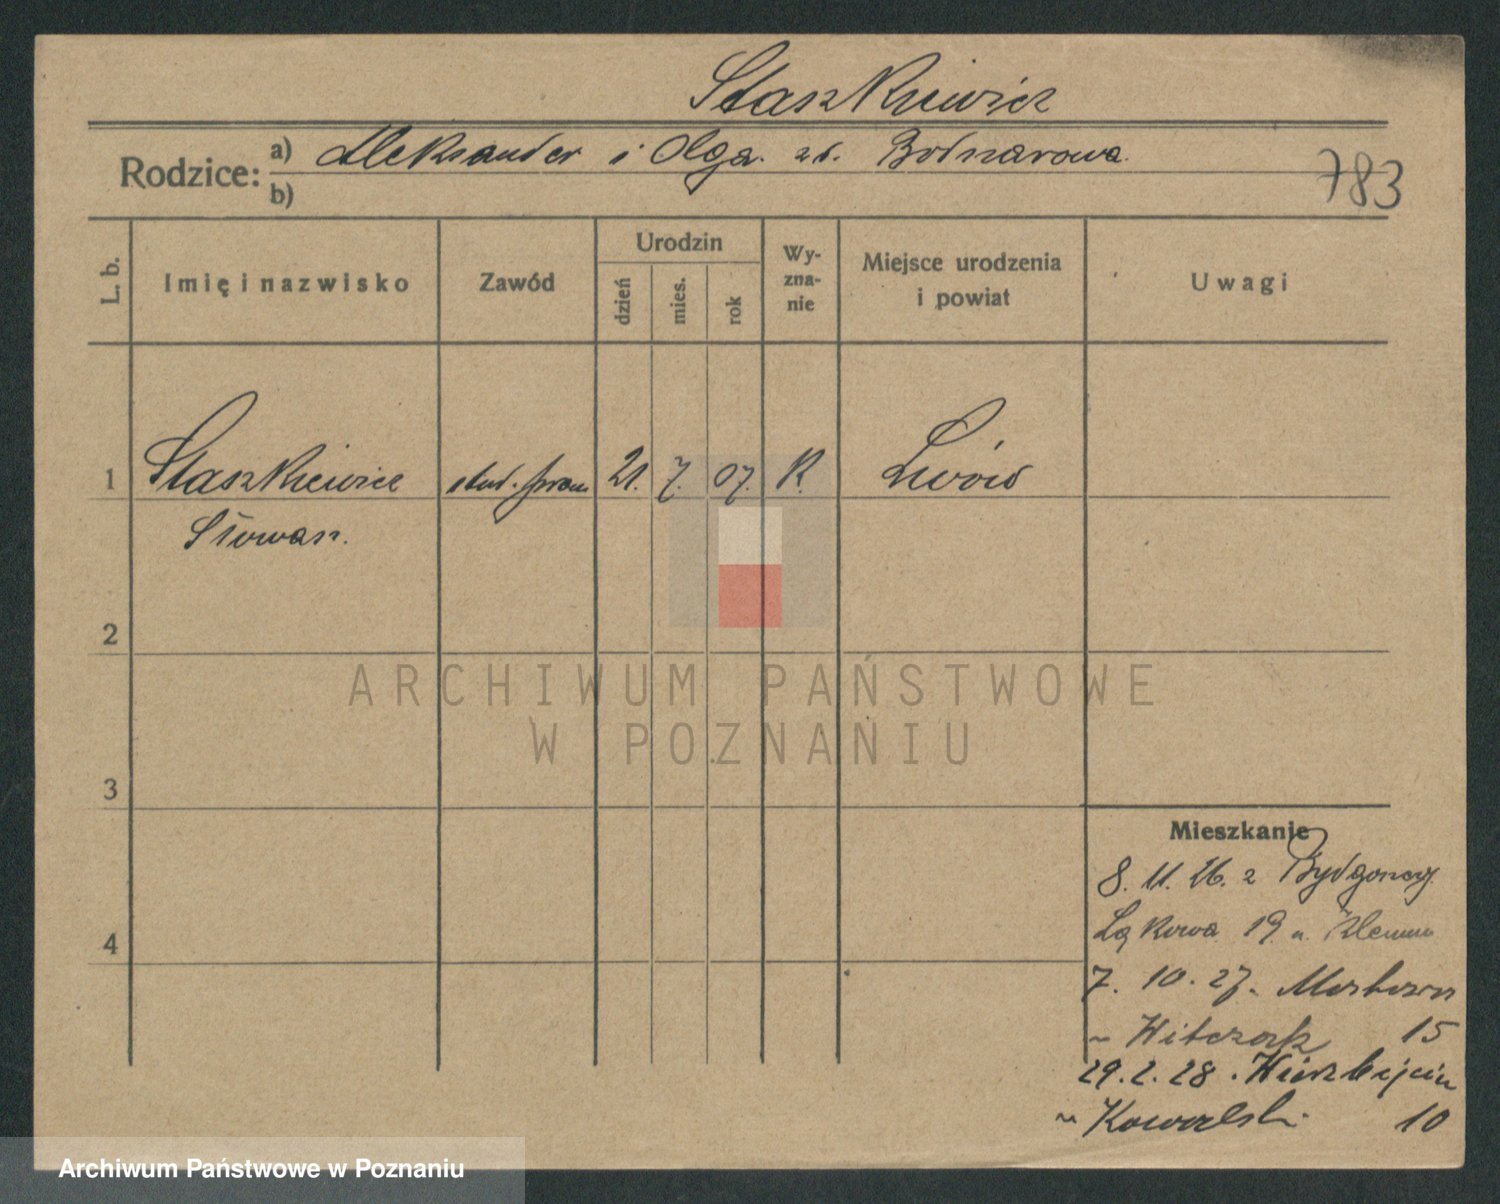 Staszkiewicz
Rodzice: a) Aleksander i Olga zd. Bodnarowa
b)
783
L. b.
Imię i nazwisko
Zawód
Urodzin
dzień
mies.
rok
Wy-
zna-
nie
Miejsce urodzenia
i powiat
Uwagi
1 Staszkiewicz stud. praw 21. 7. 07. R. Lwów
2
3
4
Mieszkanie
8. 11. 26. z Bydgoszcz
Łąkowa 19 u
7. 10. 27.
15
29. 2. 28.
Kowalski 10
ARCHIWUM PAŃSTWOWE
W POZNANIU
Archiwum Państwowe w Poznaniu